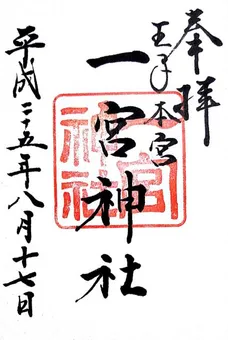 奉拝
王子本宮
一宮神社
平成二十五年八月十七日
一宮神社